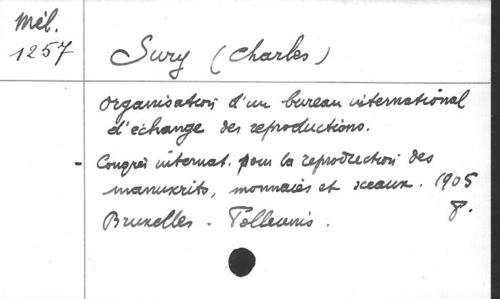 Mél.
1257
Sury (Charles)
Organisation d'un bureau international
d'échange des reproductions.
- Congrès internat. pour la reproduction des
manuscrits, monnaies et sceaux. 1905
Bruxelles. Polleunis. 8.